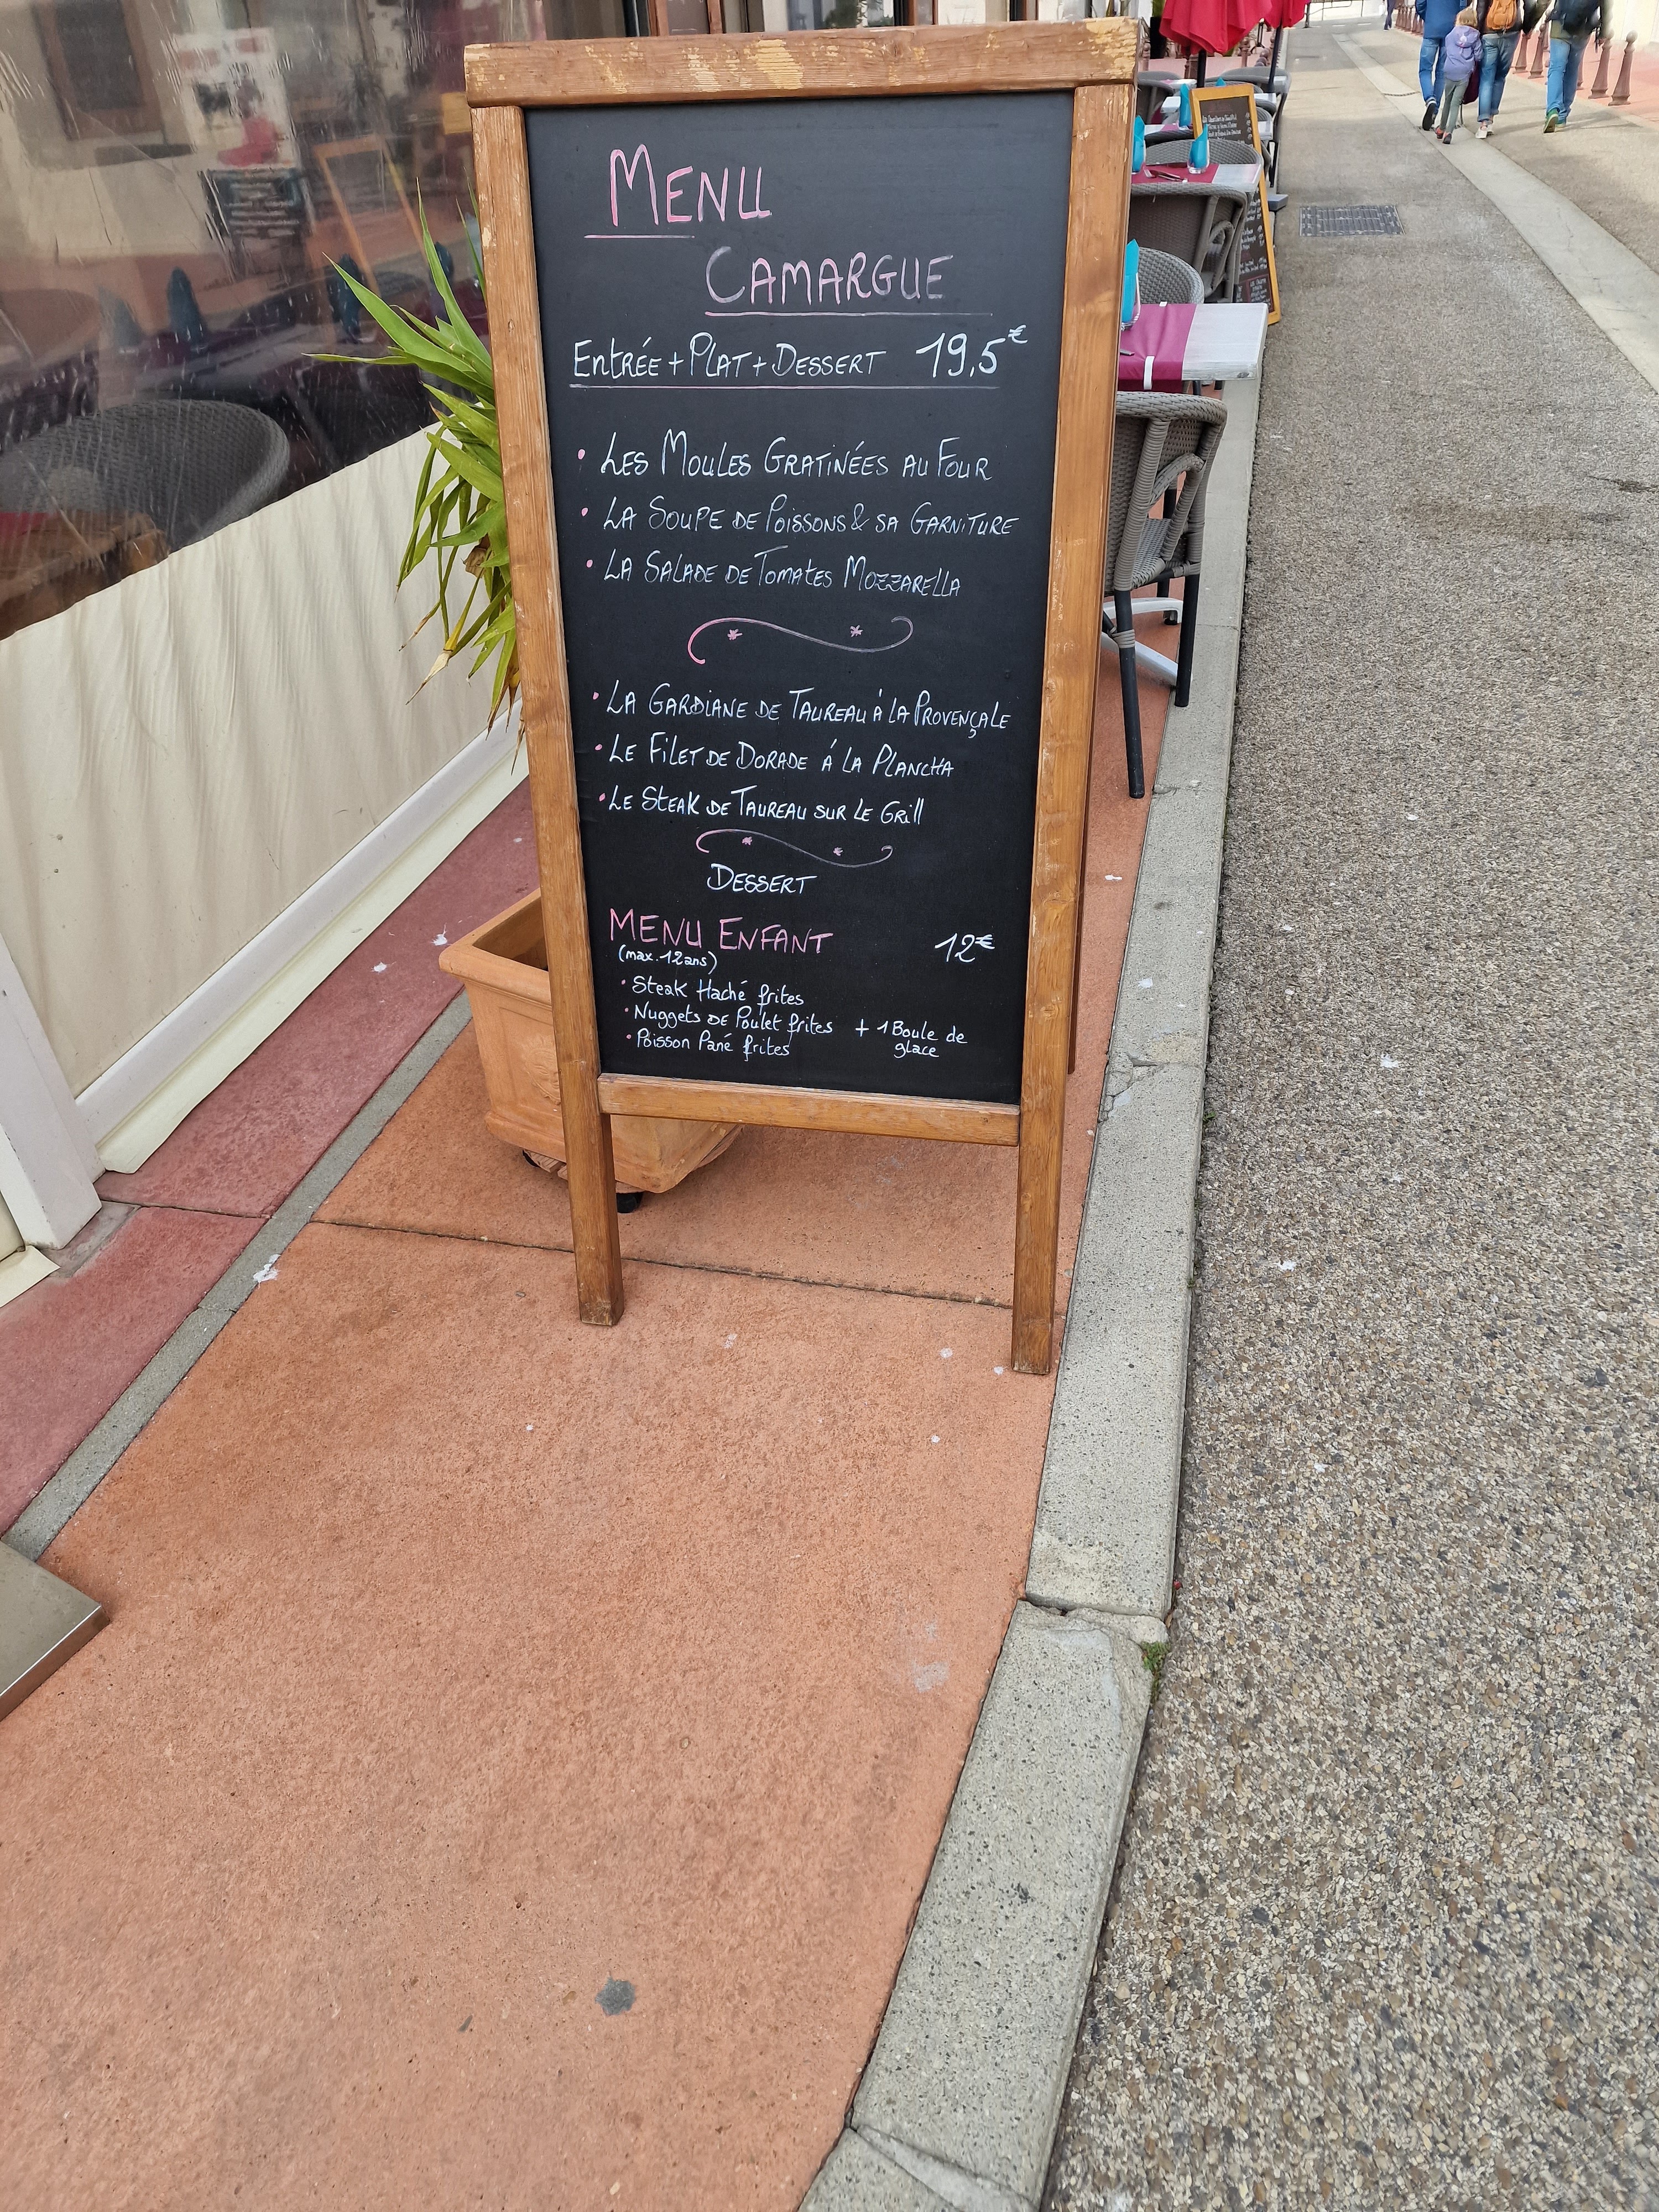 MENU
CAMARGUE
ENTRÉE + PLAT + DESSERT 19,5€
• LES MOULES GRATINÉES AU FOUR
• LA SOUPE DE POISSONS & SA GARNITURE
• LA SALADE DE TOMATES MOZZARELLA
• LA GARDIANE DE TAUREAU À LA PROVENÇALE
• LE FILET DE DORADE Á LA PLANCHA
• LE STEAK DE TAUREAU SUR LE GRILL
DESSERT
MENU ENFANT 12€
(max. 12ans)
• Steak Haché frites
• Nuggets DE Poulet frites + 1 Boule de
glace
• Poisson Pané frites